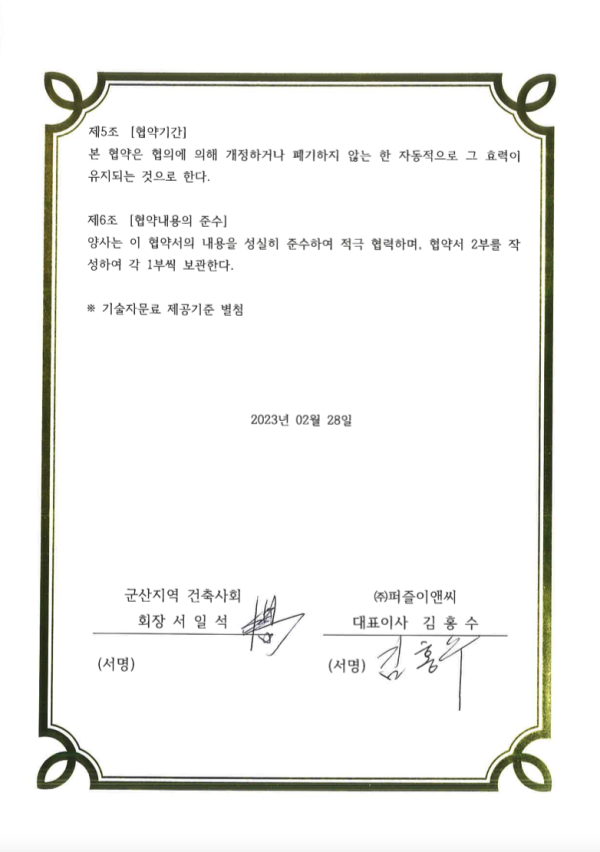 제5조 [협약기간]
본 협약은 협의에 의해 개정하거나 폐기하지 않는 한 자동적으로 그 효력이
유지되는 것으로 한다.
제6조 [협약내용의 준수]
양사는 이 협약서의 내용을 성실히 준수하여 적극 협력하며, 협약서 2부를 작
성하여 각 1부씩 보관한다.
※ 기술자문료 제공기준 별첨
2023년 02월 28일
군산지역 건축사회
회장 서 일 석
(서명)
㈜퍼즐이앤씨
대표이사 김 홍 수
(서명) 김홍수